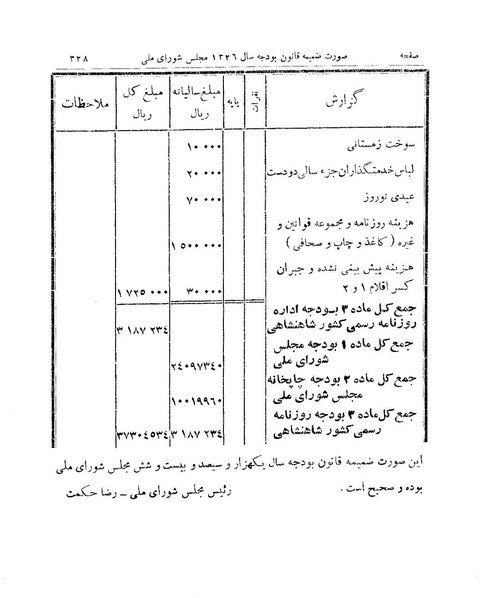 صفحه صورت ضمیمه قانون بودجه سال ۱۳۲۶ مجلس شورای ملی ۳۲۸
گزارش نفرات پایه مبلغ سالیانه ریال مبلغ کل ریال ملاحظات
سوخت زمستانی ۱۰ ۰۰۰
لباس خدمتگذاران جزء سالی دو دست ۲۰ ۰۰۰
عیدی نوروز ۷۰ ۰۰۰
هزینه روزنامه و مجموعه قوانین و
غیره (کاغذ و چاپ و صحافی) ۱ ۵۰۰ ۰۰۰
هزینه پیش بینی نشده و جبران
کسر اقلام ۱ و ۲ ۳۰ ۰۰۰ ۱ ۷۲۵ ۰۰۰
جمع کل ماده ۳ بودجه اداره
روزنامه رسمی کشور شاهنشاهی ۳ ۱۸۷ ۲۳٤
جمع کل ماده ۱ بودجه مجلس
شورای ملی ۲٤۰۹۷۳٤۰
جمع کل ماده ۲ بودجه چاپخانه
مجلس شورای ملی ۱۰۰۱۹۹٦۰
جمع کل ماده ۳ بودجه روزنامه
رسمی کشور شاهنشاهی ۳ ۱۸۷ ۲۳٤ ۳۷۳۰٤۵۳٤
این صورت ضمیمه قانون بودجه سال یکهزار و سیصد و بیست و شش مجلس شورای ملی
بوده و صحیح است. رئیس مجلس شورای ملی ـ رضا حکمت